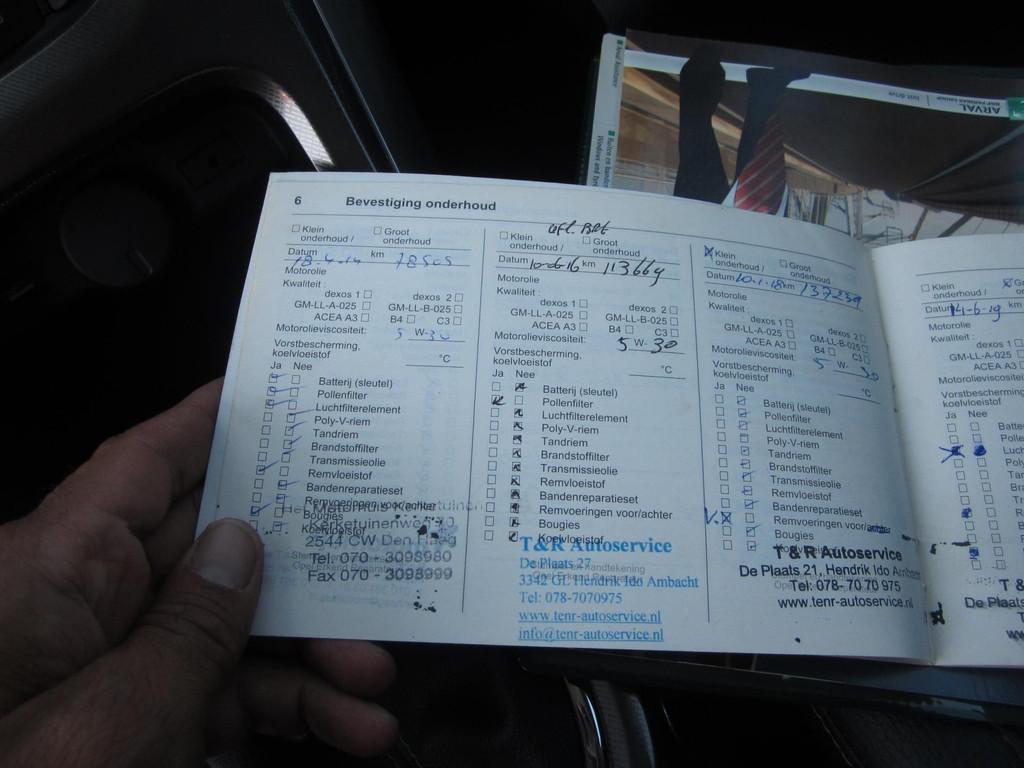 ARVAL
BNP PARIBAS GROUP
6 Bevestiging onderhoud
Klein onderhoud / Groot onderhoud
Datum 18-4-14 km 78505
Motorolie
Kwaliteit :
dexos 1 dexos 2
GM-LL-A-025 GM-LL-B-025
ACEA A3 B4 C3
Motorolieviscositeit: 5 W- 30
Vorstbescherming,
koelvloeistof °C
Ja Nee
Batterij (sleutel)
Pollenfilter
Luchtfilterelement
Poly-V-riem
Tandriem
Brandstoffilter
Transmissieolie
Remvloeistof
Bandenreparatieset
Remvoeringen voor/achter
Bougies
Koelvloeistof
Kerketuinenweg
2544 CW Den Haag
Tel. 070 - 3098980
Fax 070 - 3098999
Klein onderhoud / Groot onderhoud
Datum 10-06-16 km 113669
Motorolie
Kwaliteit :
dexos 1 dexos 2
GM-LL-A-025 GM-LL-B-025
ACEA A3 B4 C3
Motorolieviscositeit: 5 W- 30
Vorstbescherming,
koelvloeistof °C
Ja Nee
Batterij (sleutel)
Pollenfilter
Luchtfilterelement
Poly-V-riem
Tandriem
Brandstoffilter
Transmissieolie
Remvloeistof
Bandenreparatieset
Remvoeringen voor/achter
Bougies
Koelvloeistof
T&R Autoservice
De Plaats 27
3342 GL Hendrik Ido Ambacht
Tel: 078-7070975
www.tenr-autoservice.nl
info@tenr-autoservice.nl
Klein onderhoud / Groot onderhoud
Datum 10-1-18 km 137239
Motorolie
Kwaliteit :
dexos 1 dexos 2
GM-LL-A-025 GM-LL-B-025
ACEA A3 B4 C3
Motorolieviscositeit: 5 W- 30
Vorstbescherming,
koelvloeistof °C
Ja Nee
Batterij (sleutel)
Pollenfilter
Luchtfilterelement
Poly-V-riem
Tandriem
Brandstoffilter
Transmissieolie
Remvloeistof
Bandenreparatieset
Remvoeringen voor/achter
Bougies
T & R Autoservice
De Plaats 21, Hendrik Ido Ambacht
Tel: 078- 70 70 975
www.tenr-autoservice.nl
Klein
onderhoud /
Datum 14-6-19
Motorolie
Kwaliteit :
dexos 1
GM-LL-A-025
ACEA A3
Motorolieviscositei
Vorstbescherming,
koelvloeistof
Ja Nee
Batte
Polle
Luch
Poly
Tan
Bra
Tra
Re
Ba
T &
De Plaats